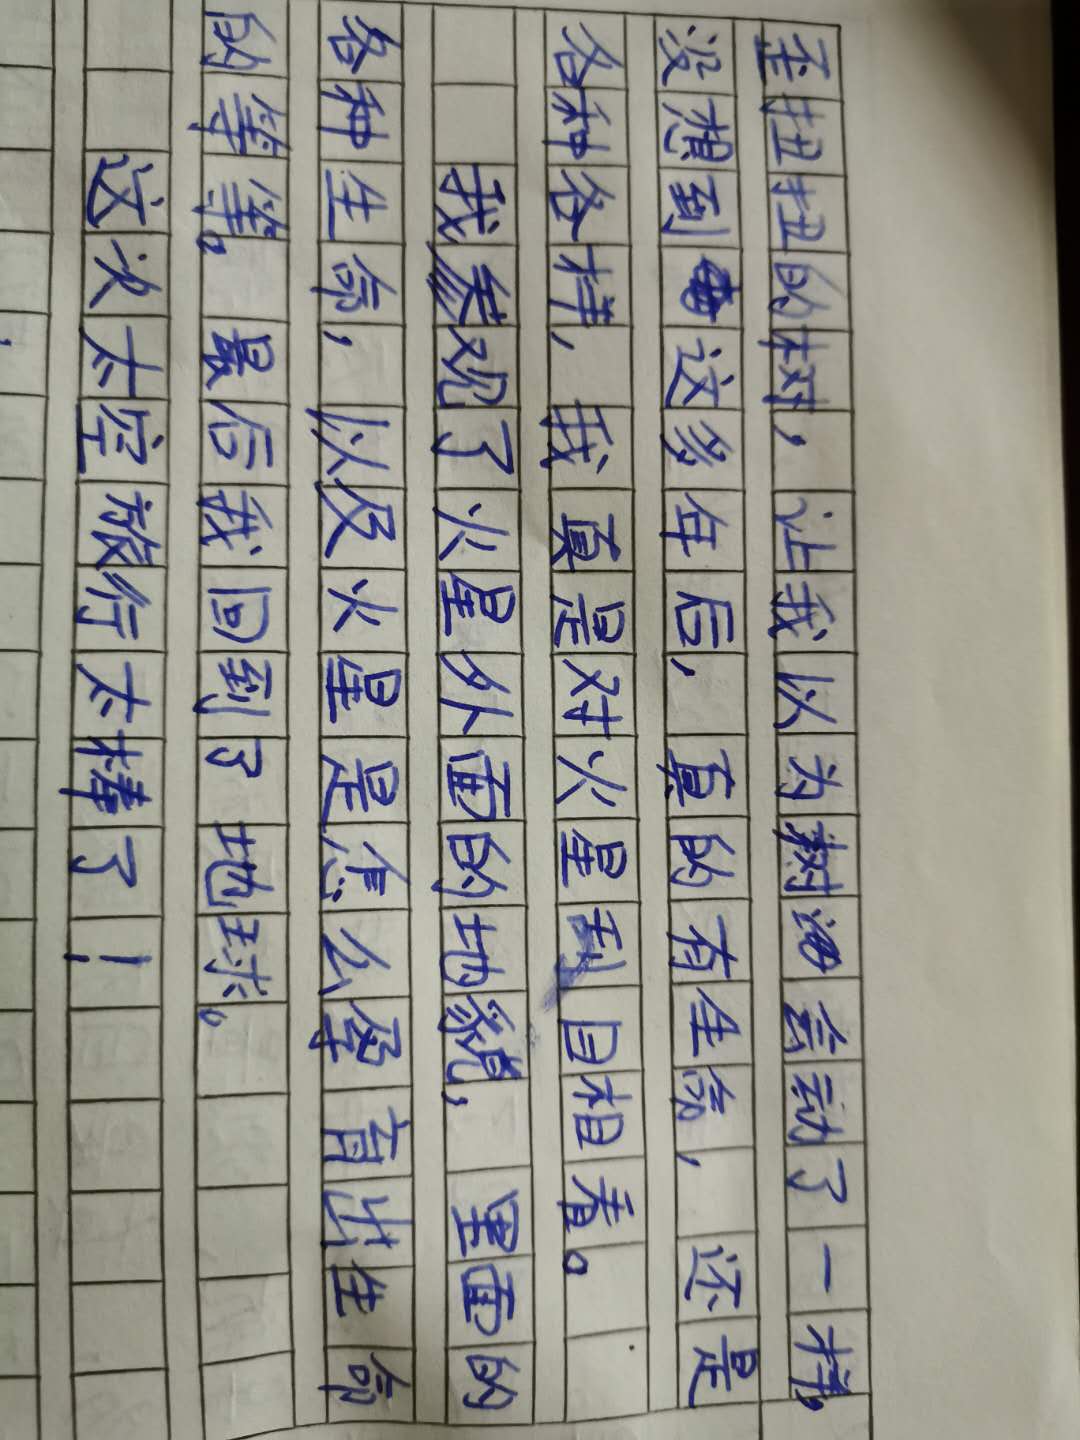 歪扭扭的树，让我以为树会动了一样，
没想到这多年后，真的有生命，还是
各种各样，我真是对火星刮目相看。
我参观了火星外面的地貌，里面的
各种生命，以及火星是怎么孕育出生命
的等等。最后我回到了地球。
这次太空旅行太棒了！